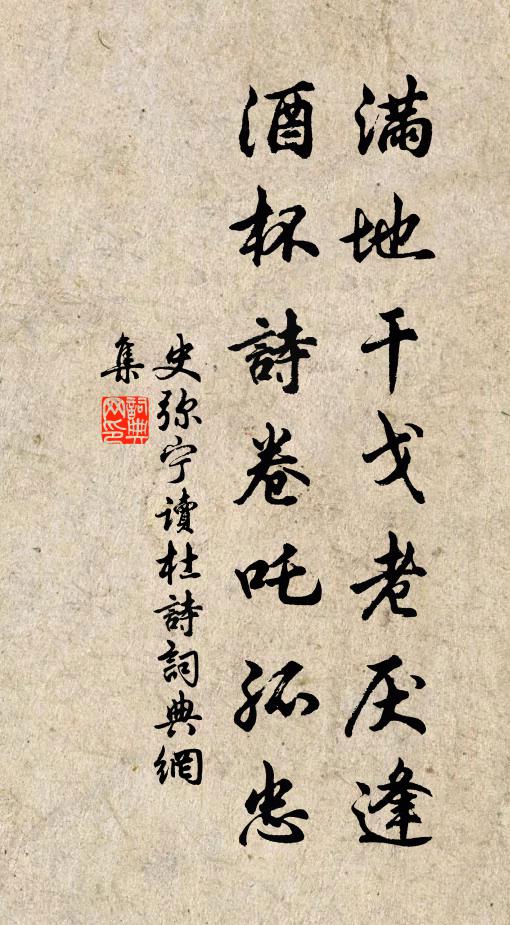 滿地干戈老厌逢
酒杯詩卷吒孤忠
史弥宁讀杜詩詞典網
集
詞典网印